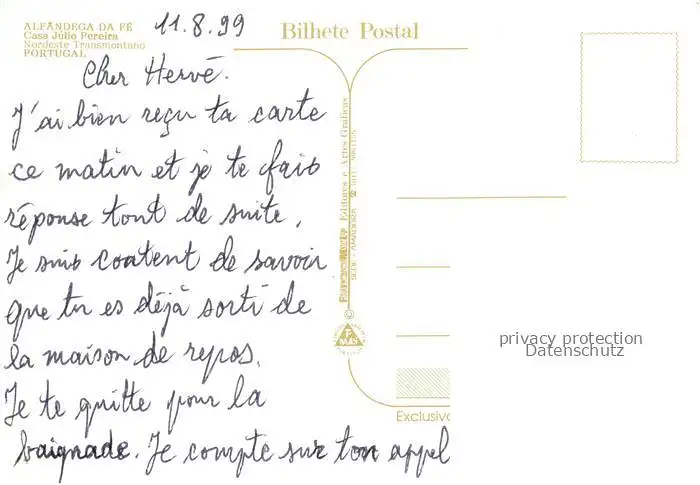 ALFÂNDEGA DA FÉ
Casa Júlio Pereira
Nordeste Transmontano
PORTUGAL
11.8.99
Bilhete Postal
Cher Hervé.
J'ai bien reçu ta carte
ce matin et je te fais
réponse tout de suite.
Je suis content de savoir
que tu es déjà sorti de
la maison de repos.
Je te quitte pour la
baignade. Je compte sur ton appel
Editores e Artes Gráficas
SEDE - AMADORA
privacy protection
Datenschutz
Exclusivo